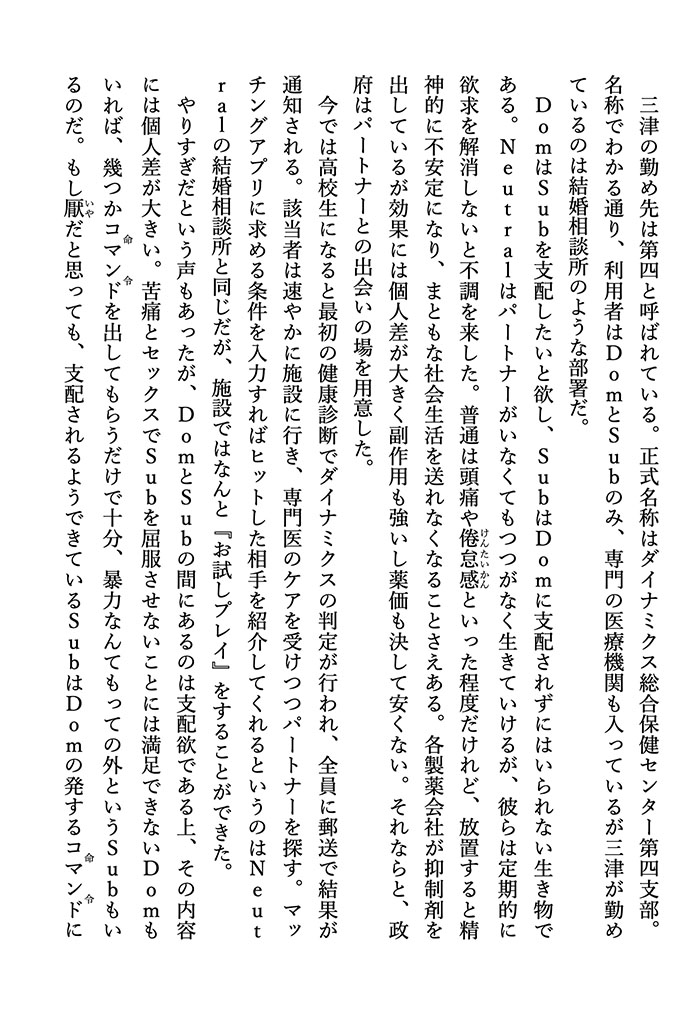 三津の勤め先は第四と呼ばれている。正式名称はダイナミクス総合保健センター第四支部。
名称でわかる通り、利用者はDomとSubのみ、専門の医療機関も入っているが三津が勤め
ているのは結婚相談所のような部署だ。
DomはSubを支配したいと欲し、SubはDomに支配されずにはいられない生き物で
ある。Neutralはパートナーがいなくてもつつがなく生きていけるが、彼らは定期的に
欲求を解消しないと不調を来した。普通は頭痛や倦怠感けんたいかんといった程度だけれど、放置すると精
神的に不安定になり、まともな社会生活を送れなくなることさえある。各製薬会社が抑制剤を
出しているが効果には個人差が大きく副作用も強いし薬価も決して安くない。それならと、政
府はパートナーとの出会いの場を用意した。
今では高校生になると最初の健康診断でダイナミクスの判定が行われ、全員に郵送で結果が
通知される。該当者は速やかに施設に行き、専門医のケアを受けつつパートナーを探す。マッ
チングアプリに求める条件を入力すればヒットした相手を紹介してくれるというのはNeut
ralの結婚相談所と同じだが、施設ではなんと『お試しプレイ』をすることができた。
やりすぎだという声もあったが、DomとSubの間にあるのは支配欲である上、その内容
には個人差が大きい。苦痛とセックスでSubを屈服させないことには満足できないDomも
いれば、幾つかコマンド命令を出してもらうだけで十分、暴力なんてもっての外というSubもい
るのだ。もし厭いやだと思っても、支配されるようできているSubはDomの発するコマンド命令に